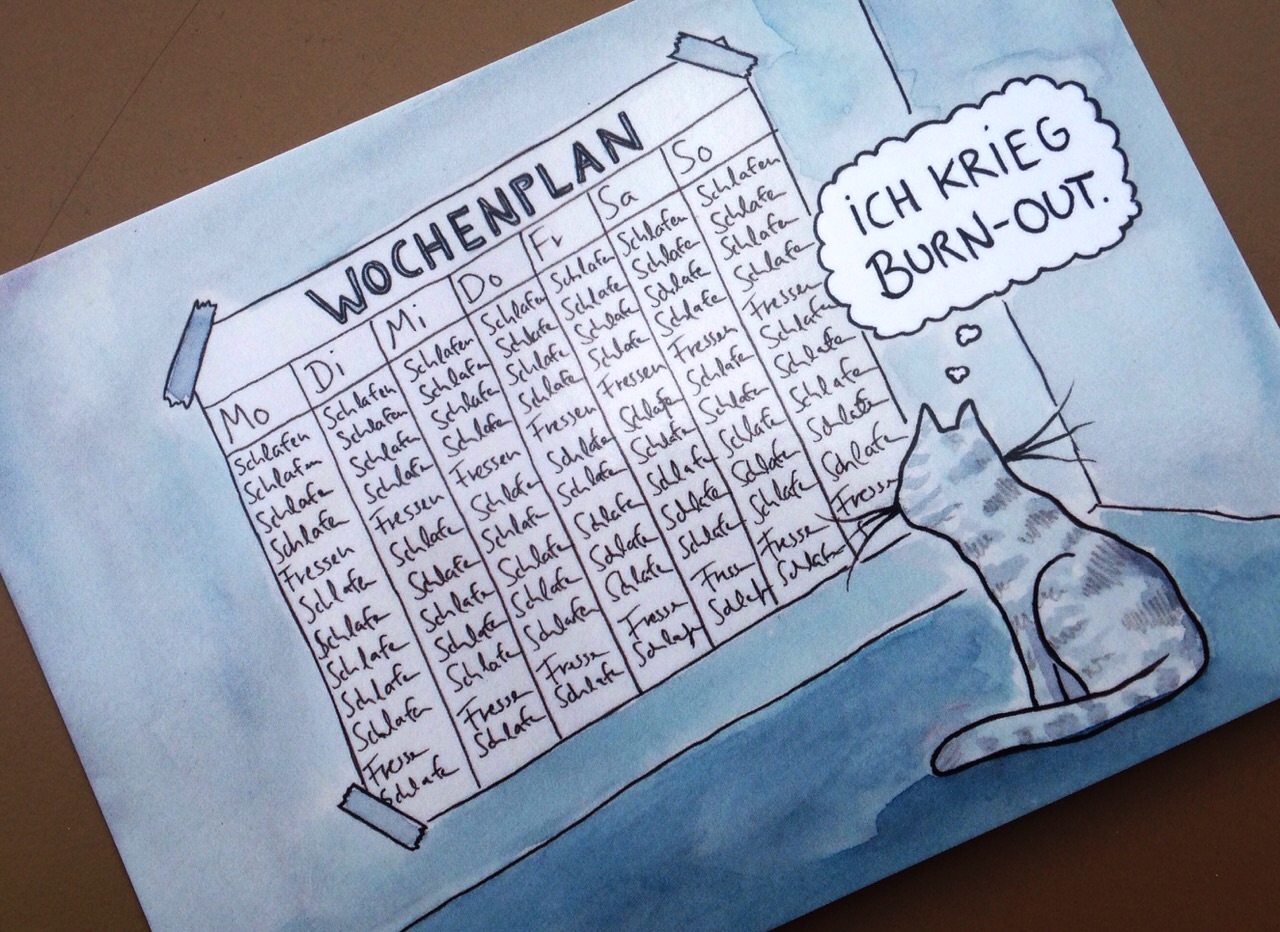 WOCHENPLAN
Mo Di Mi Do Fr Sa So
Schlafen Schlafen Schlafen Schlafen Schlafen Schlafen Schlafen
Schlafen Schlafen Schlafen Schlafen Schlafen Schlafen Schlafen
Schlafen Schlafen Schlafen Schlafen Schlafen Schlafen Schlafen
Schlafen Schlafen Schlafen Schlafen Schlafen Schlafen Schlafen
Fressen Fressen Fressen Fressen Fressen Fressen Fressen
Schlafen Schlafen Schlafen Schlafen Schlafen Schlafen Schlafen
Schlafen Schlafen Schlafen Schlafen Schlafen Schlafen Schlafen
Schlafen Schlafen Schlafen Schlafen Schlafen Schlafen Schlafen
Schlafen Schlafen Schlafen Schlafen Schlafen Schlafen Schlafen
Schlafen Schlafen Schlafen Schlafen Schlafen Schlafen Schlafen
Fressen Fressen Fressen Fressen Fressen Fressen Fressen
Schlafen Schlafen Schlafen Schlafen Schlafen Schlafen
ICH KRIEG
BURN-OUT.